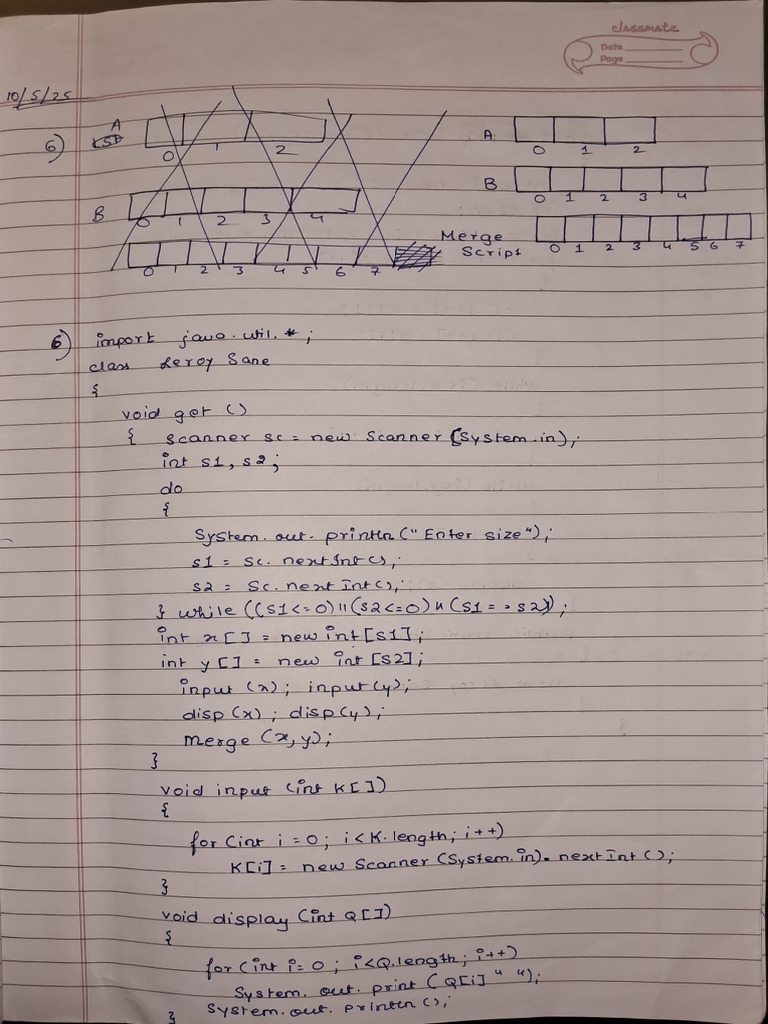 classmate
Date
Page
10/5/25
6)
A
0 1 2
B
0 1 2 3 4
0 1 2 3 4 5 6 7
A
0 1 2
B
0 1 2 3 4
Merge
Script
0 1 2 3 4 5 6 7
6) import java.util.*;
class Leroy Sane
{
void get ()
{ Scanner sc = new Scanner (System.in);
int s1, s2;
do
{
System.out.println("Enter size");
s1 = sc.nextInt();
s2 = sc.nextInt();
} while ((s1<=0)||(s2<=0)||(s1==s2));
int x[] = new int[s1];
int y[] = new int [s2];
input (x); input(y);
disp (x); disp(y);
merge (x,y);
}
void input (int K[])
{
for (int i = 0; i<K.length; i++)
K[i] = new Scanner (System.in).nextInt();
}
void display (int Q[])
{
for (int i=0; i<Q.length; i++)
System.out.print (Q[i] " ");
} System.out.println();